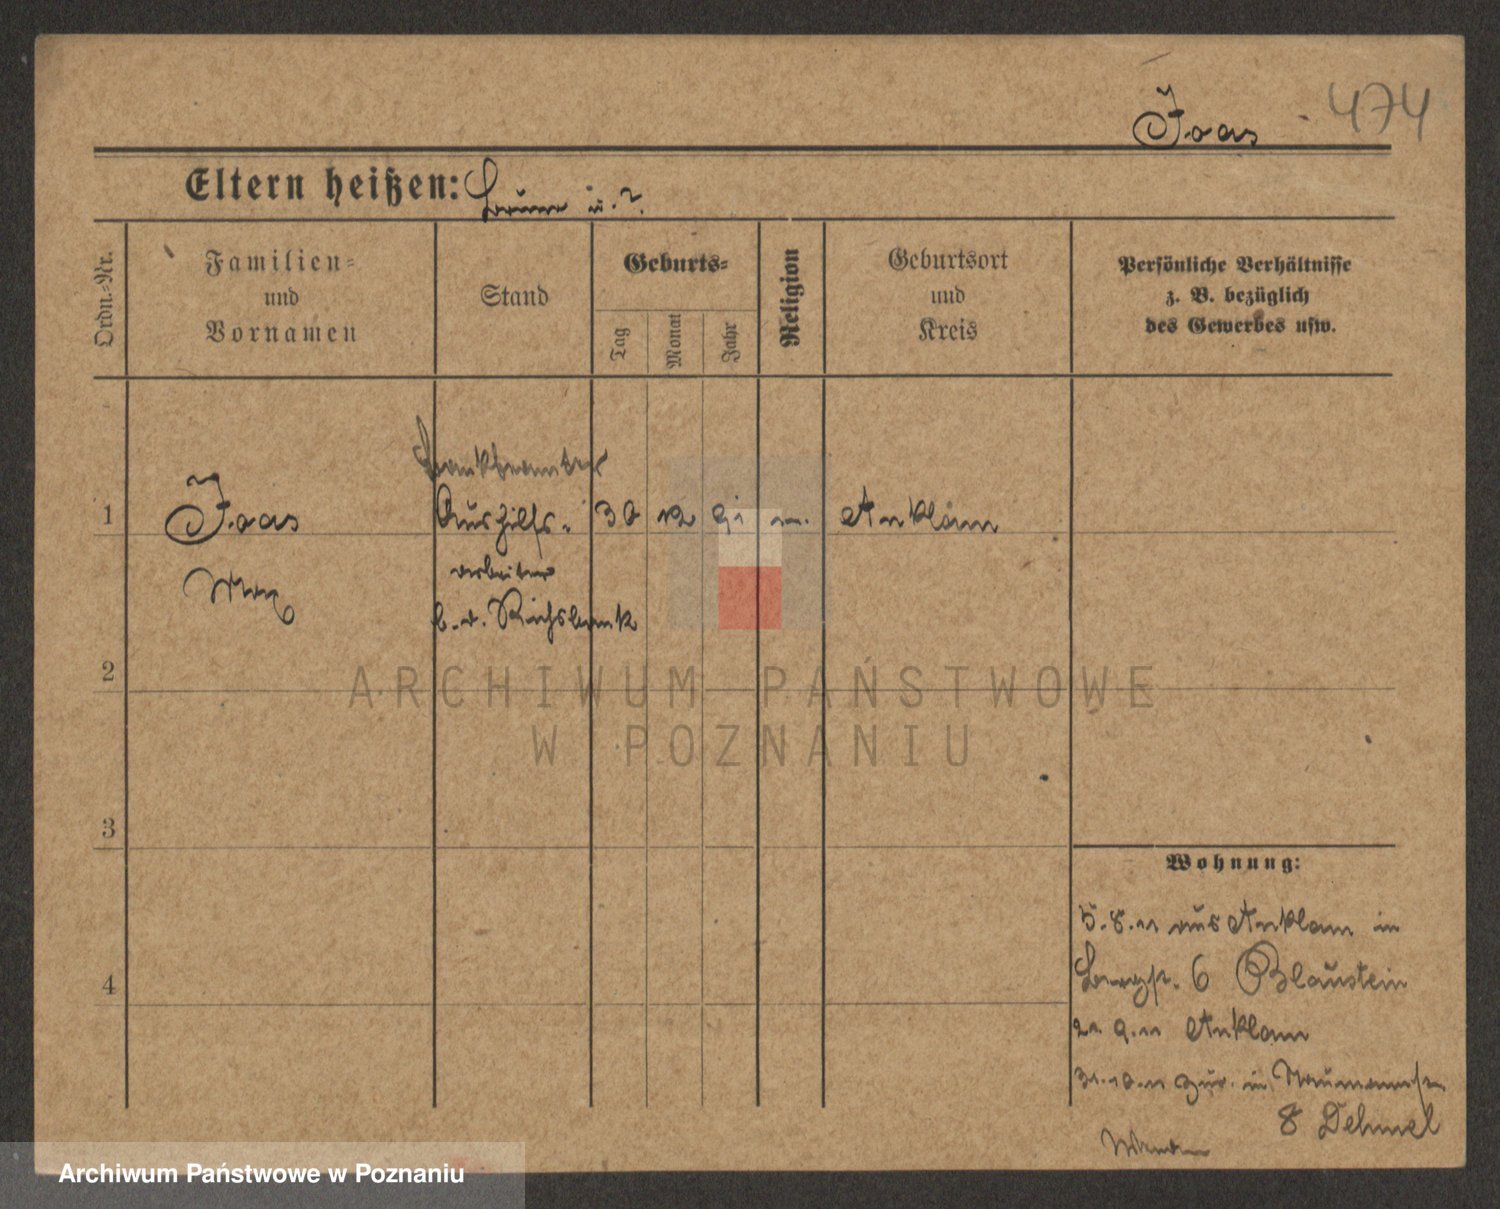 Joas
474
Eltern heißen: u. ?
Ordn.-Nr.
Familien-
und
Vornamen
Stand
Geburts-
Tag
Monat
Jahr
Religion
Geburtsort
und
Kreis
Persönliche Verhältnisse
z. B. bezüglich
des Gewerbes usw.
Bankbeamter
1 Joas Aushilfs- 30 12 91 Anklam
Max arbeiter
b. d. Reichsbank
2
3
4
Wohnung:
5.8.11 aus Anklam in
Bergstr. 6 Blaustein
21.9.11 Anklam
31.10.11 zur. in Naumannstr.
8 Dehmel
Wenden
ARCHIWUM PAŃSTWOWE
W POZNANIU
Archiwum Państwowe w Poznaniu